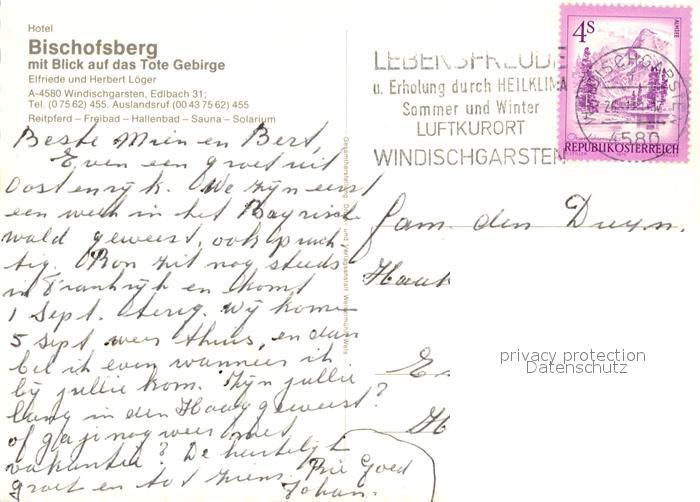 Hotel
Bischofsberg
mit Blick auf das Tote Gebirge
Elfriede und Herbert Löger
A-4580 Windischgarsten, Edlbach 31;
Tel. (0 75 62) 455. Auslandsruf (00 43 75 62) 455
Reitpferd – Freibad – Hallenbad – Sauna – Solarium
Beste Mien en Bert,
Even een groet uit
Oostenrijk. We zijn eerst
een week in het Bayrische
wald geweest, ook prach
tig. Ron zit nog steeds
in Frankrijk en komt
1 Sept. terug. Wij komen
5 sept weer thuis, en dan
bel ik even wanneer ik
bij jullie kom. Zijn jullie
lang in den Haag geweest?
of ga je nog weer met
vakantie? De hartelijk
groet en tot ziens.
Johan.
LEBENSFREUDE
u. Erholung durch HEILKLIMA
Sommer und Winter
LUFTKURORT
WINDISCHGARSTEN
4580
4S
ALMSEE
REPUBLIK ÖSTERREICH
Fam. den Duyn.
privacy protection
Datenschutz